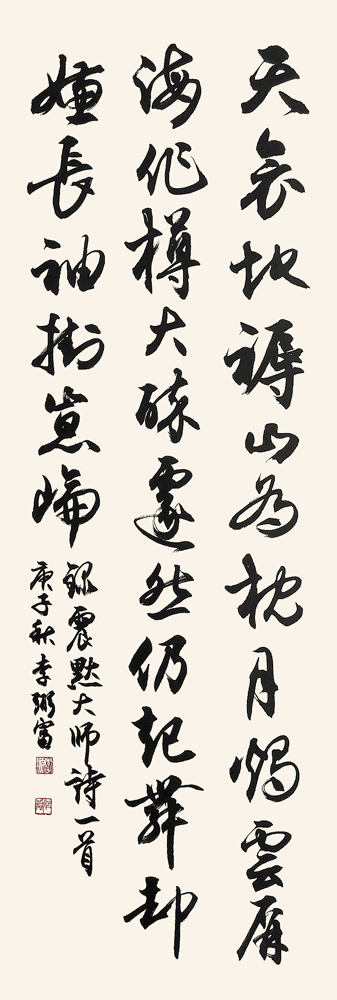 天衾地褥山為枕月燭雲屛
海作樽大醉遽然仍起舞却
嫌長袖掛崑崘
錄震默大師詩一首
庚子秋李